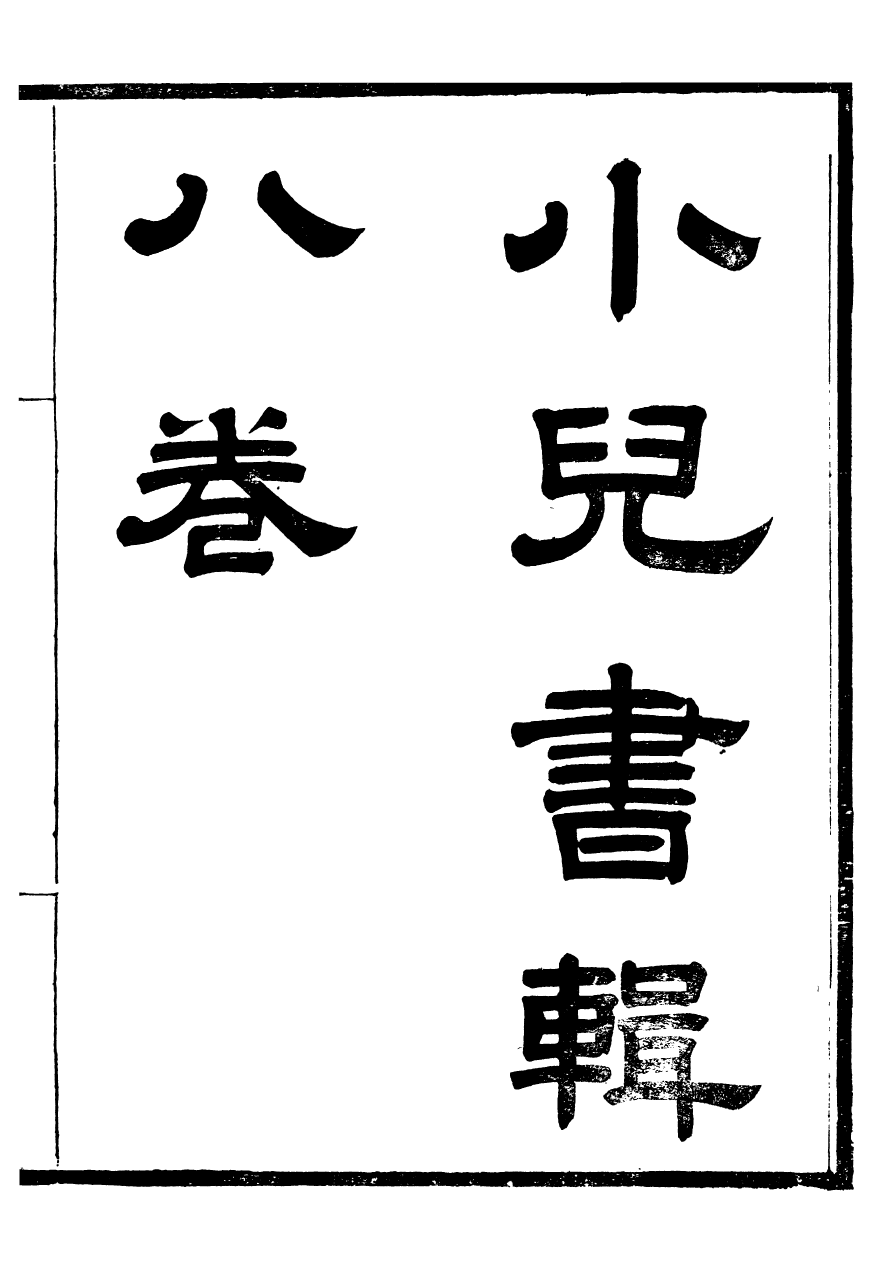 小兒書輯
八卷